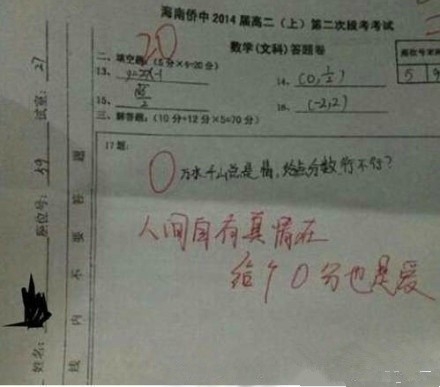 海南侨中2014届高二（上）第二次段考考试
数学(文科)答题卷
20
二、填空题:（5分×4=20分）
13、 y=2x-1
14、 (0,1/2)
15、 2
16、 (-2,2)
三、解答题:（10分+12分×5=70分）
17题:
0 万水千山总是情,给点分数行不行?
人间自有真情在
给个0分也是爱
座位号末两
5 9
姓名: 座位号: 59 试室: 27
线 内 不 要 答 题